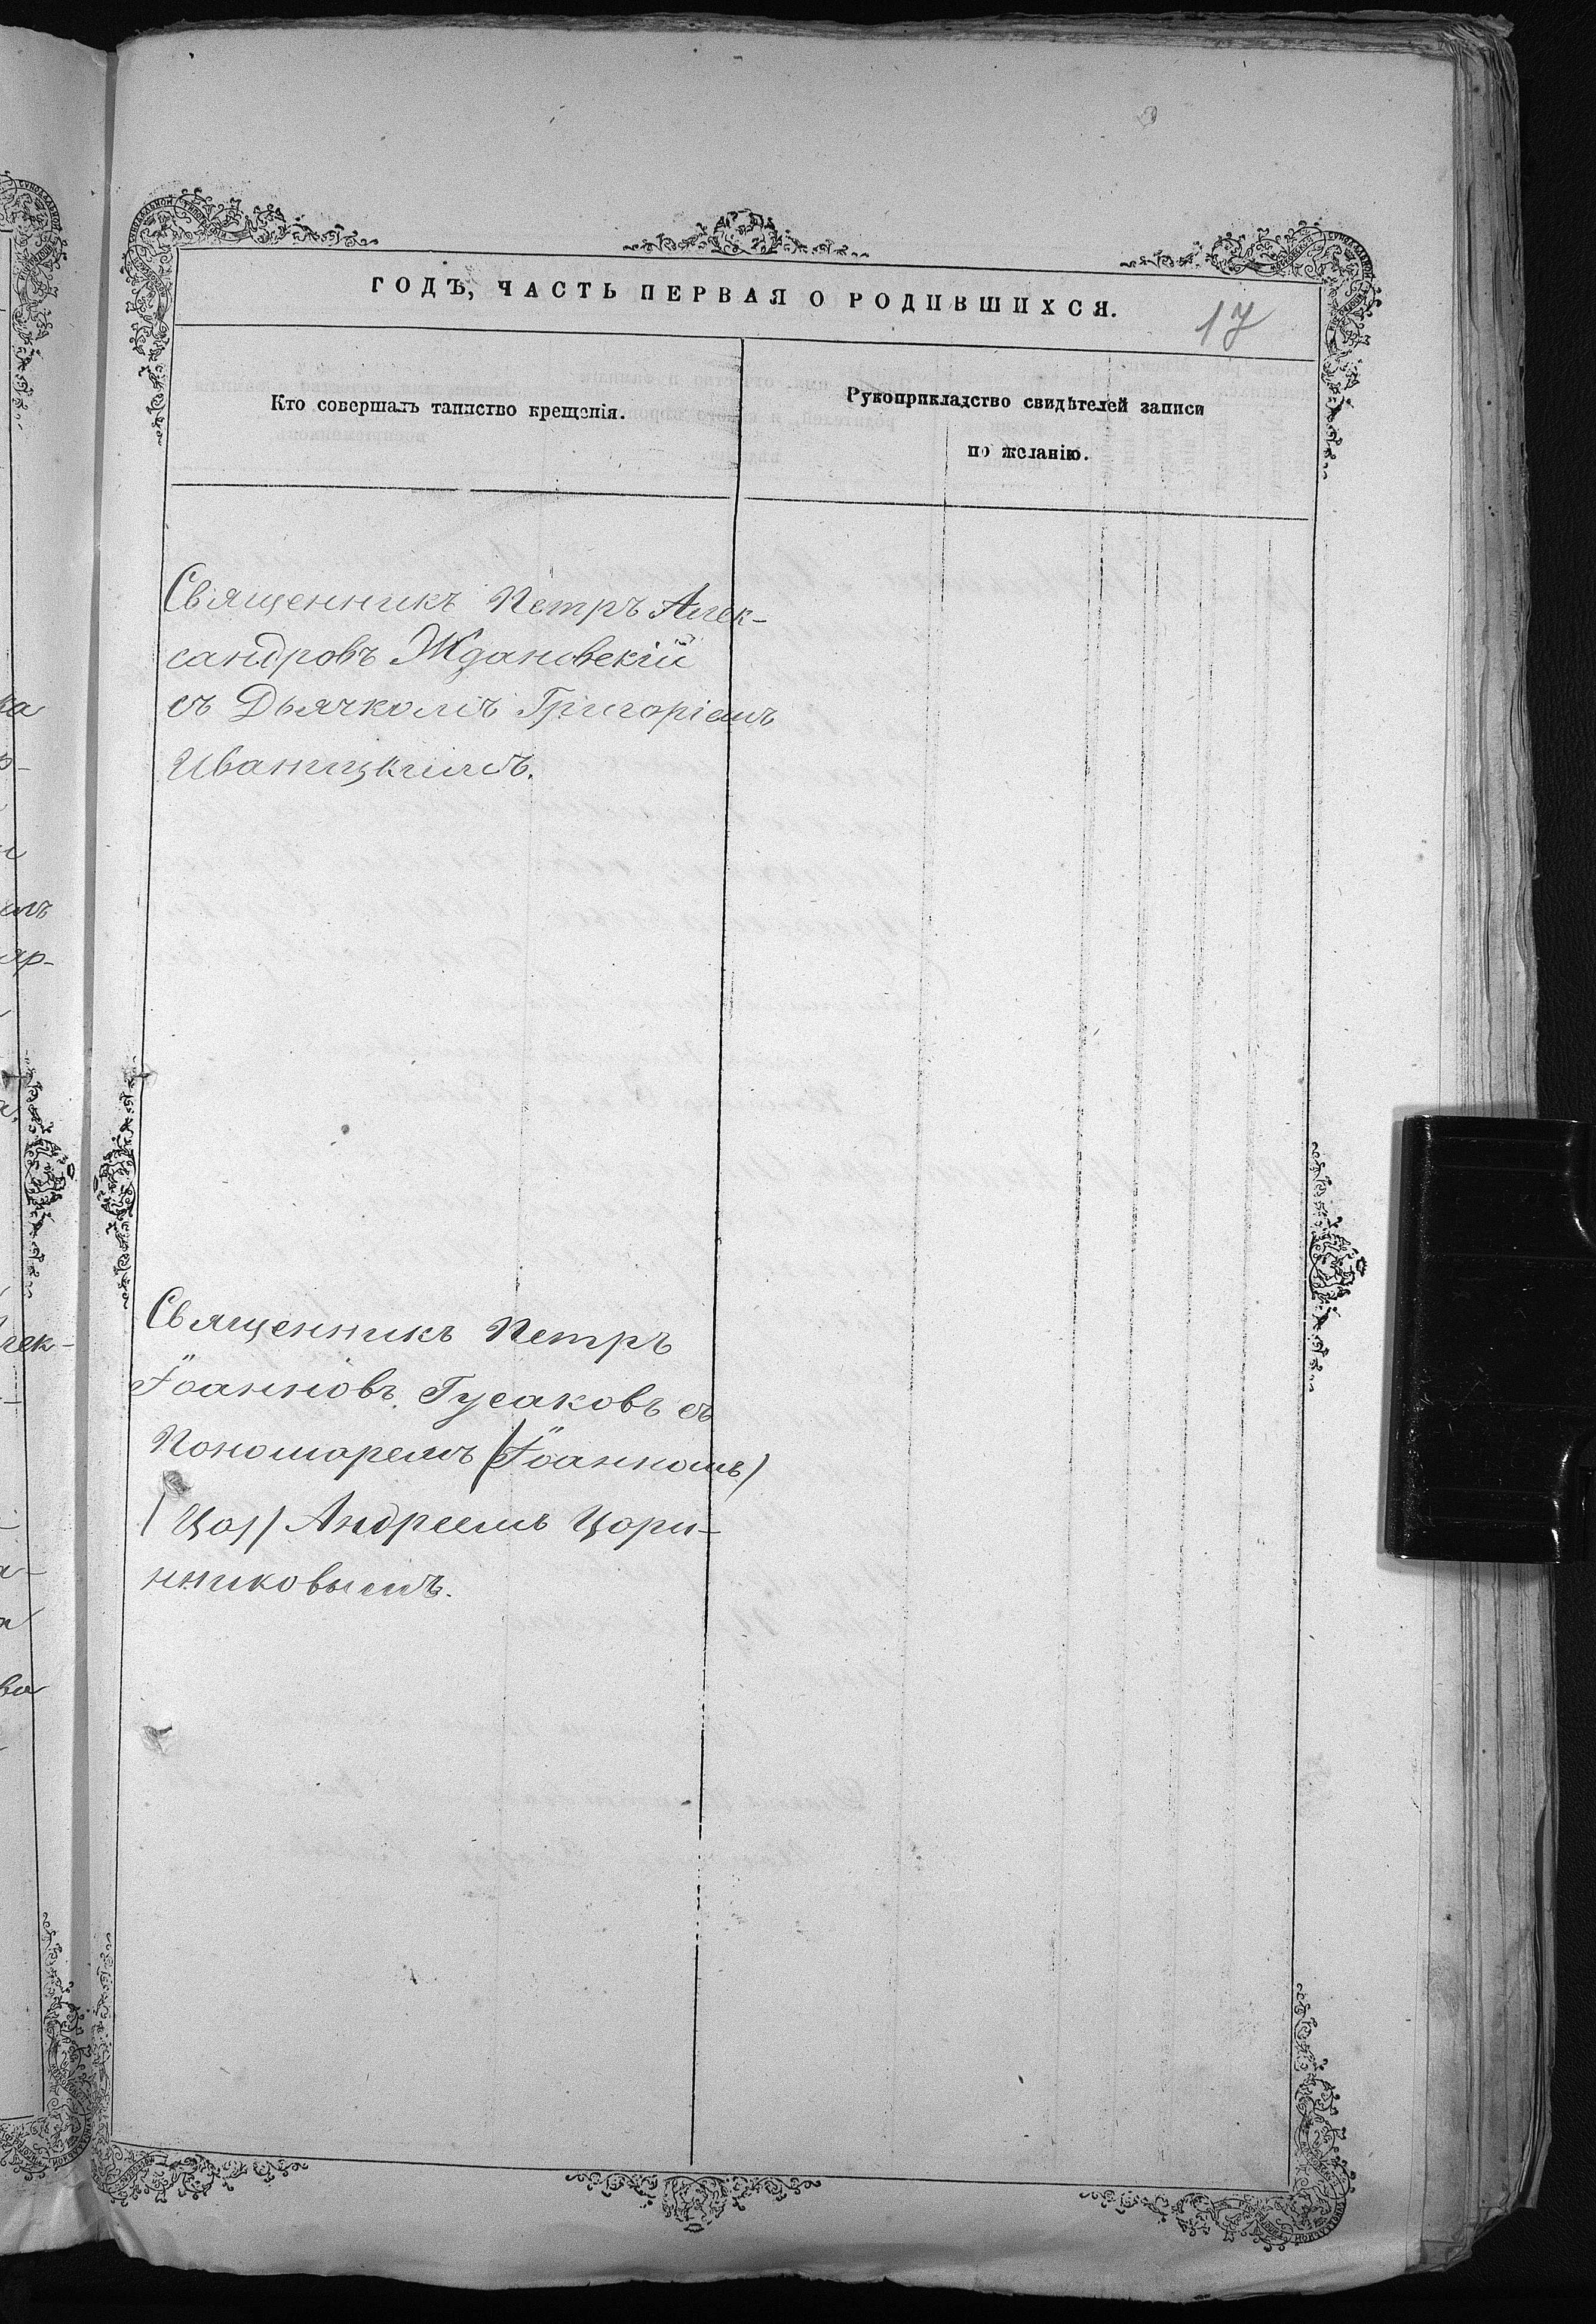 ГОДЪ, ЧАСТЬ ПЕРВАЯ О РОДИВШИХСЯ.
17
Кто совершалъ таинство крещенія.
Рукоприкладство свидѣтелей записи
по желанію.
Священникъ Петръ Алек-
сандровъ Ждановскій
съ Дьячкомъ Григоріемъ
Иваницкимъ.
Священникъ Петръ
Іоанновъ Гусаковъ съ
Пономаремъ (Іоанномъ)
(Цор) Андреемъ Цори-
нниковымъ.